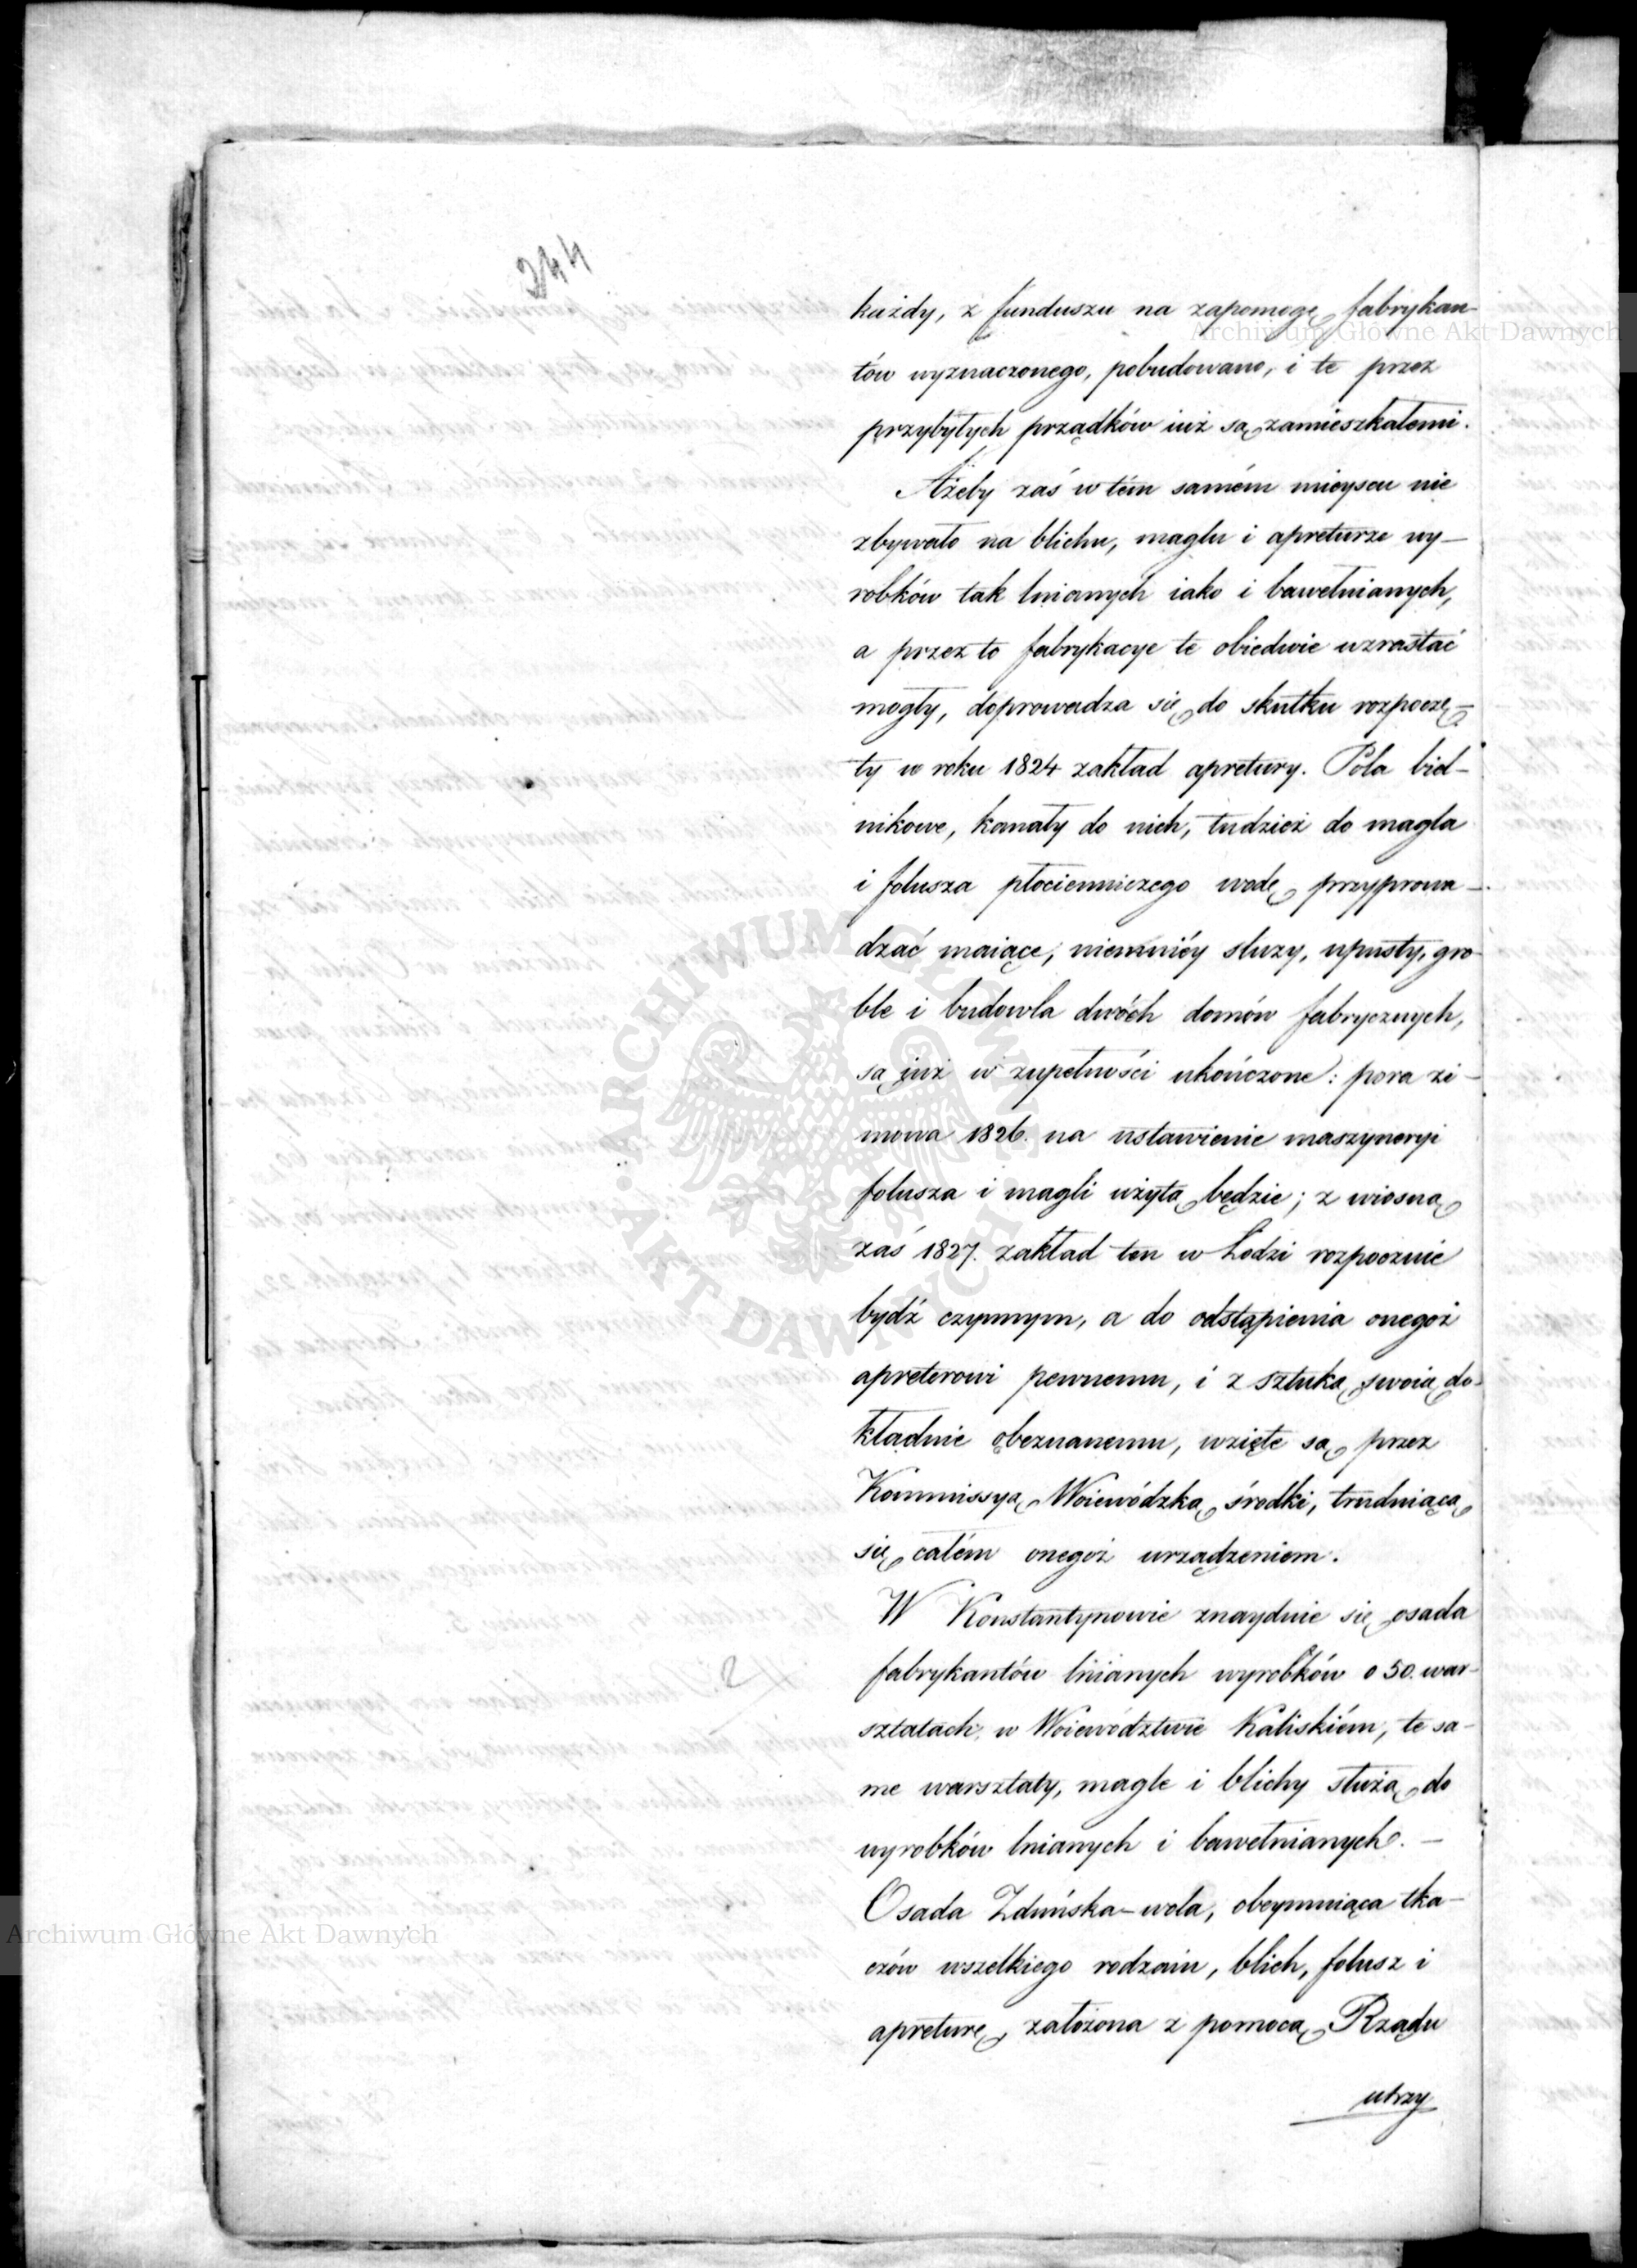 244
każdy, z funduszu na zapomogę fabrykan-
tów wyznaczonego, pobudowano, i te przez
przybyłych prządków iuż są zamieszkałemi.
Ażeby zaś w tém samém mieyscu nie
zbywało na blichu, maglu i apreturze wy-
robków tak lnianych iako i bawełnianych,
a przez to fabrykacye te obiedwie wzrastać
mogły, doprowadza się do skutku rozpoczę-
ty w roku 1824 zakład apretury. Pola biel-
nikowe, kanały do nich, tudzież do magla
i folusza płócienniczego wodę przyprowa-
dzać maiące, niemniéy sluzy, upusty, gro-
ble i budowla dwóch domów fabrycznych,
są iuż w zupełności ukończone: pora zi-
mowa 1826. na ustawienie maszyneryi
folusza i magli użytą będzie; z wiosną
zaś 1827. zakład ten w Łodzi rozpocznie
bydź czynnym, a do odstąpienia onegoż
apreterowi pewnemu, i z sztuką swoią do-
kładnie obeznanemu, wzięte są przez
Kommissyą Woiewódzką środki, trudniącą
się całém onegoż urządzeniem.
W Konstantynowie znayduie się osada
fabrykantów lnianych wyrobków o 50. war-
sztatach, w Woiewództwie Kaliskiém, te sa-
me warsztaty, magle i blichy służą do
wyrobków lnianych i bawełnianych. -
Osada Zduńska-wola, obeymuiąca tka-
czów wszelkiego rodzaiu, blich, folusz i
apreturę, założona z pomocą Rządu
utrzy
Archiwum Główne Akt Dawnych
ARCHIWUM GŁÓWNE AKT DAWNYCH
Archiwum Główne Akt Dawnych